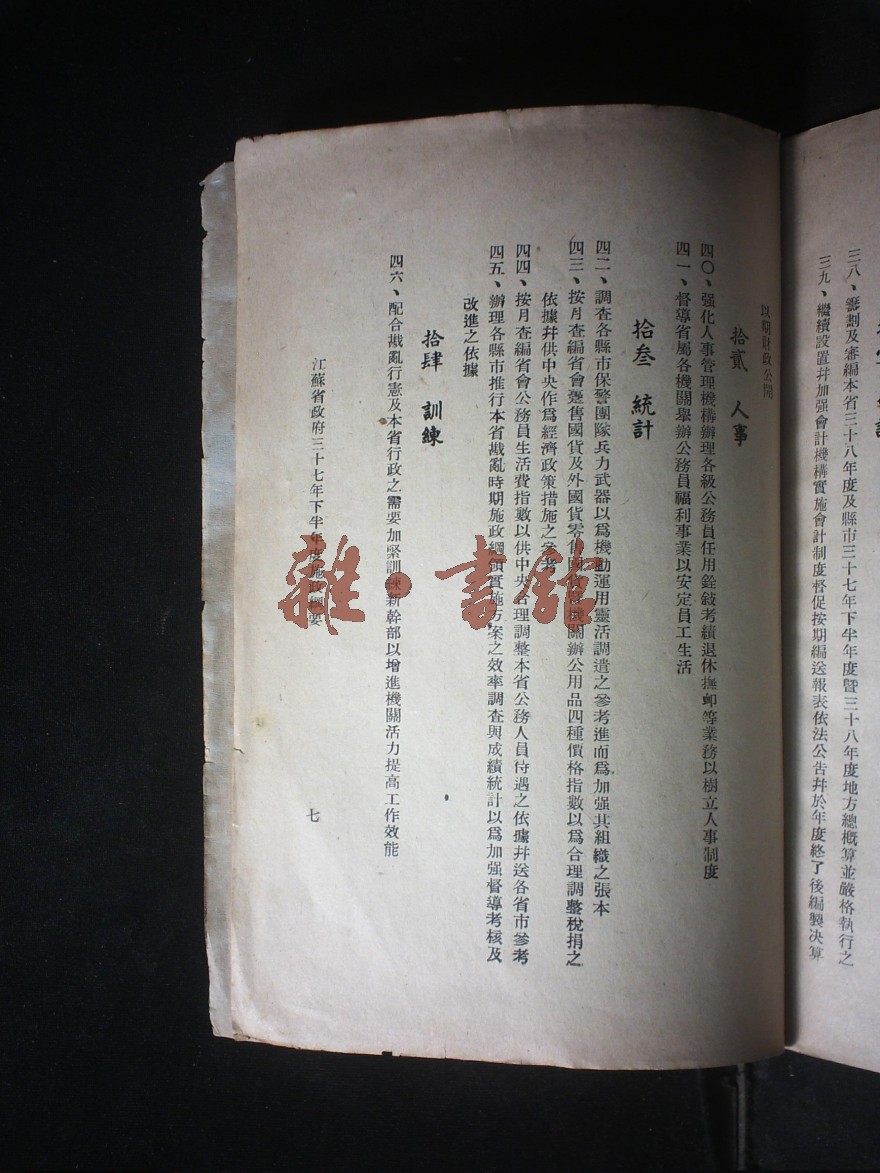 三八、籌劃及審編本省三十八年度及縣市三十七年下半年度暨三十八年度地方總概算並嚴格執行之
三九、繼續設置幷加强會計機構實施會計制度督促按期編送報表依法公告幷於年度終了後編製決算
以期財政公開
拾貳 人事
四〇、强化人事管理機構辦理各級公務員任用銓敍考績退休撫卹等業務以樹立人事制度
四一、督導省屬各機關舉辦公務員福利事業以安定員工生活
拾叁 統計
四二、調查各縣市保警團隊兵力武器以爲機動運用靈活調遣之參考進而爲加强其組織之張本
四三、按月查編省會躉售國貨及外國貨零售國貨機關辦公用品四種價格指數以爲合理調整稅捐之
依據幷供中央作爲經濟政策措施之參考
四四、按月查編省會公務員生活費指數以供中央合理調整本省公務人員待遇之依據幷送各省市參考
四五、辦理各縣市推行本省戡亂時期施政綱領實施方案之效率調查與成績統計以爲加强督導考核及
改進之依據
拾肆 訓練
四六、配合戡亂行憲及本省行政之需要加緊訓練新幹部以增進機關活力提高工作效能
江蘇省政府三十七年下半年度施政綱要
七
雜·書館